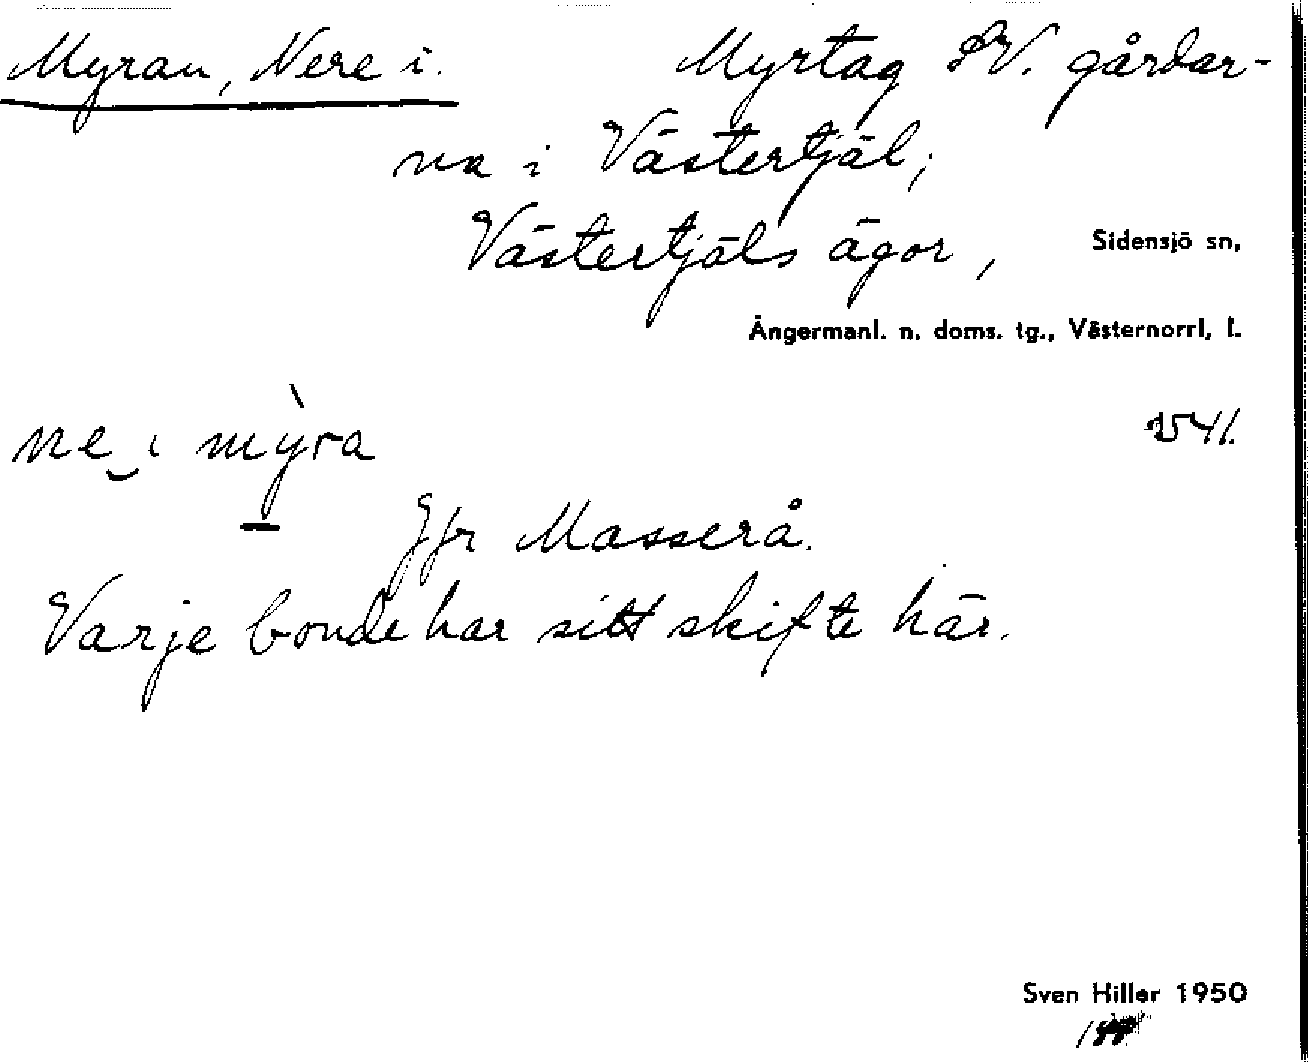 Myran, Nere i. Myrtag SV. gårdar-
na i Västertjäl;
Västertjäls ägor, Sidensjö sn,
Ångermanl. n. doms. tg., Västernorrl. l.
ne i mỳra 2541.
Jfr Masserå.
Varje bonde har sitt skifte här.
Sven Hiller 1950